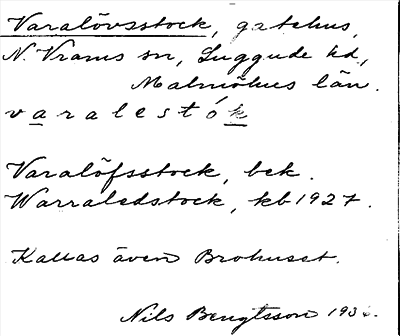 Varalövsstock, gatehus,
N. Vrams sn, Luggude hd,
Malmöhus län.
varalestók
Varalöfsstock, bek.
Warraledstock, kb 1927.
Kallas även Brohuset.
Nils Bengtsson